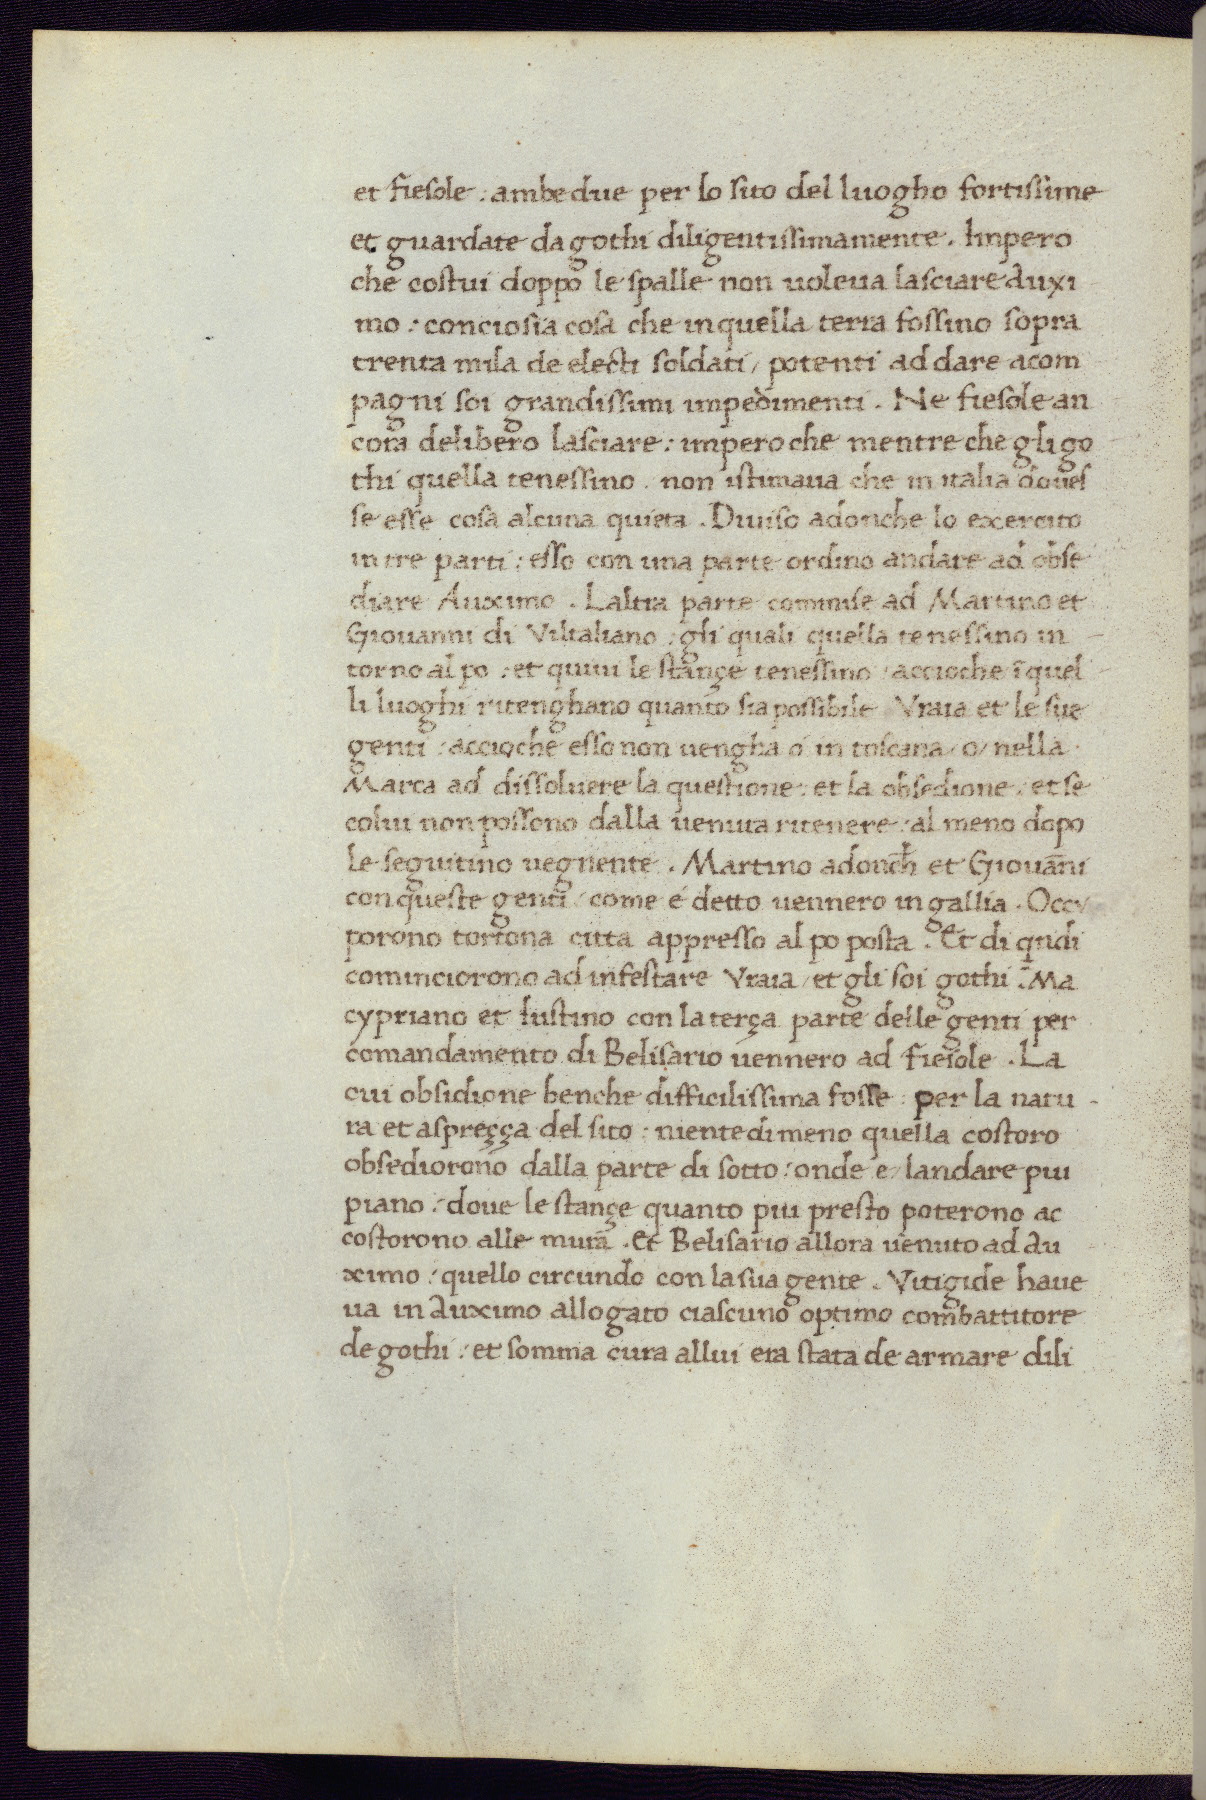 et fiesole : ambedue per lo sito del luogho fortissime
et guardate da gothi diligentissimamente . Impero
che costui doppo le spalle non uoleua lasciare Auxi
mo : conciosia cosa che inquella terra fossino sopra
trenta mila de electi soldati / potenti ad dare acom
pagni soi grandissimi impedimenti . Ne fiesole an
cora delibero lasciare : impero che mentre che gli go
thi quella tenessino . non istimaua che in italia doues
se esse cosa alcuna quieta . Diuiso adonche lo exercito
in tre parti : esso con una parte ordino andare ad obse
diare Auximo . Laltra parte commise ad Martino et
Giouanni di Vilialiano : gli quali quella tenessino in
torno al po : et quiui le stançe tenessino : accioche ī quel
li luoghi ritenghano quanto sia possibile Vraia et le sue
genti : accioche esso non uengha o in toscana / o / nella
Marca ad dissoluere la questione : et la obsedione : et se
colui non possono dalla uenuta ritenere : al meno dopo
le seguitino uegnente . Martino adonch̄ et Giouāni
con queste genti / come é detto uennero in gallia . Occu
porono tortona citta appresso al po posta . Et di qndi
cominciorono ad infestare Vraia / et gli soi gothi : Ma
cypriano et Iustino con la terça parte delle genti per
comandamento di Belisario uennero ad fiesole . La
cui obsidione benche difficilissima fosse : per la natu
ra et aspreçça del sito : niente di meno quella costoro
obsediorono dalla parte di sotto : onde e / landare piu
piano : doue le stançe quanto piu presto poterono ac
costorono alle mura . Et Belisario allora uenuto ad Au
ximo : quello circundo con la sua gente . Vitigide haue
ua in Auximo allogato ciascuno optimo combattitore
de gothi : et somma cura allui era stata de armare dili